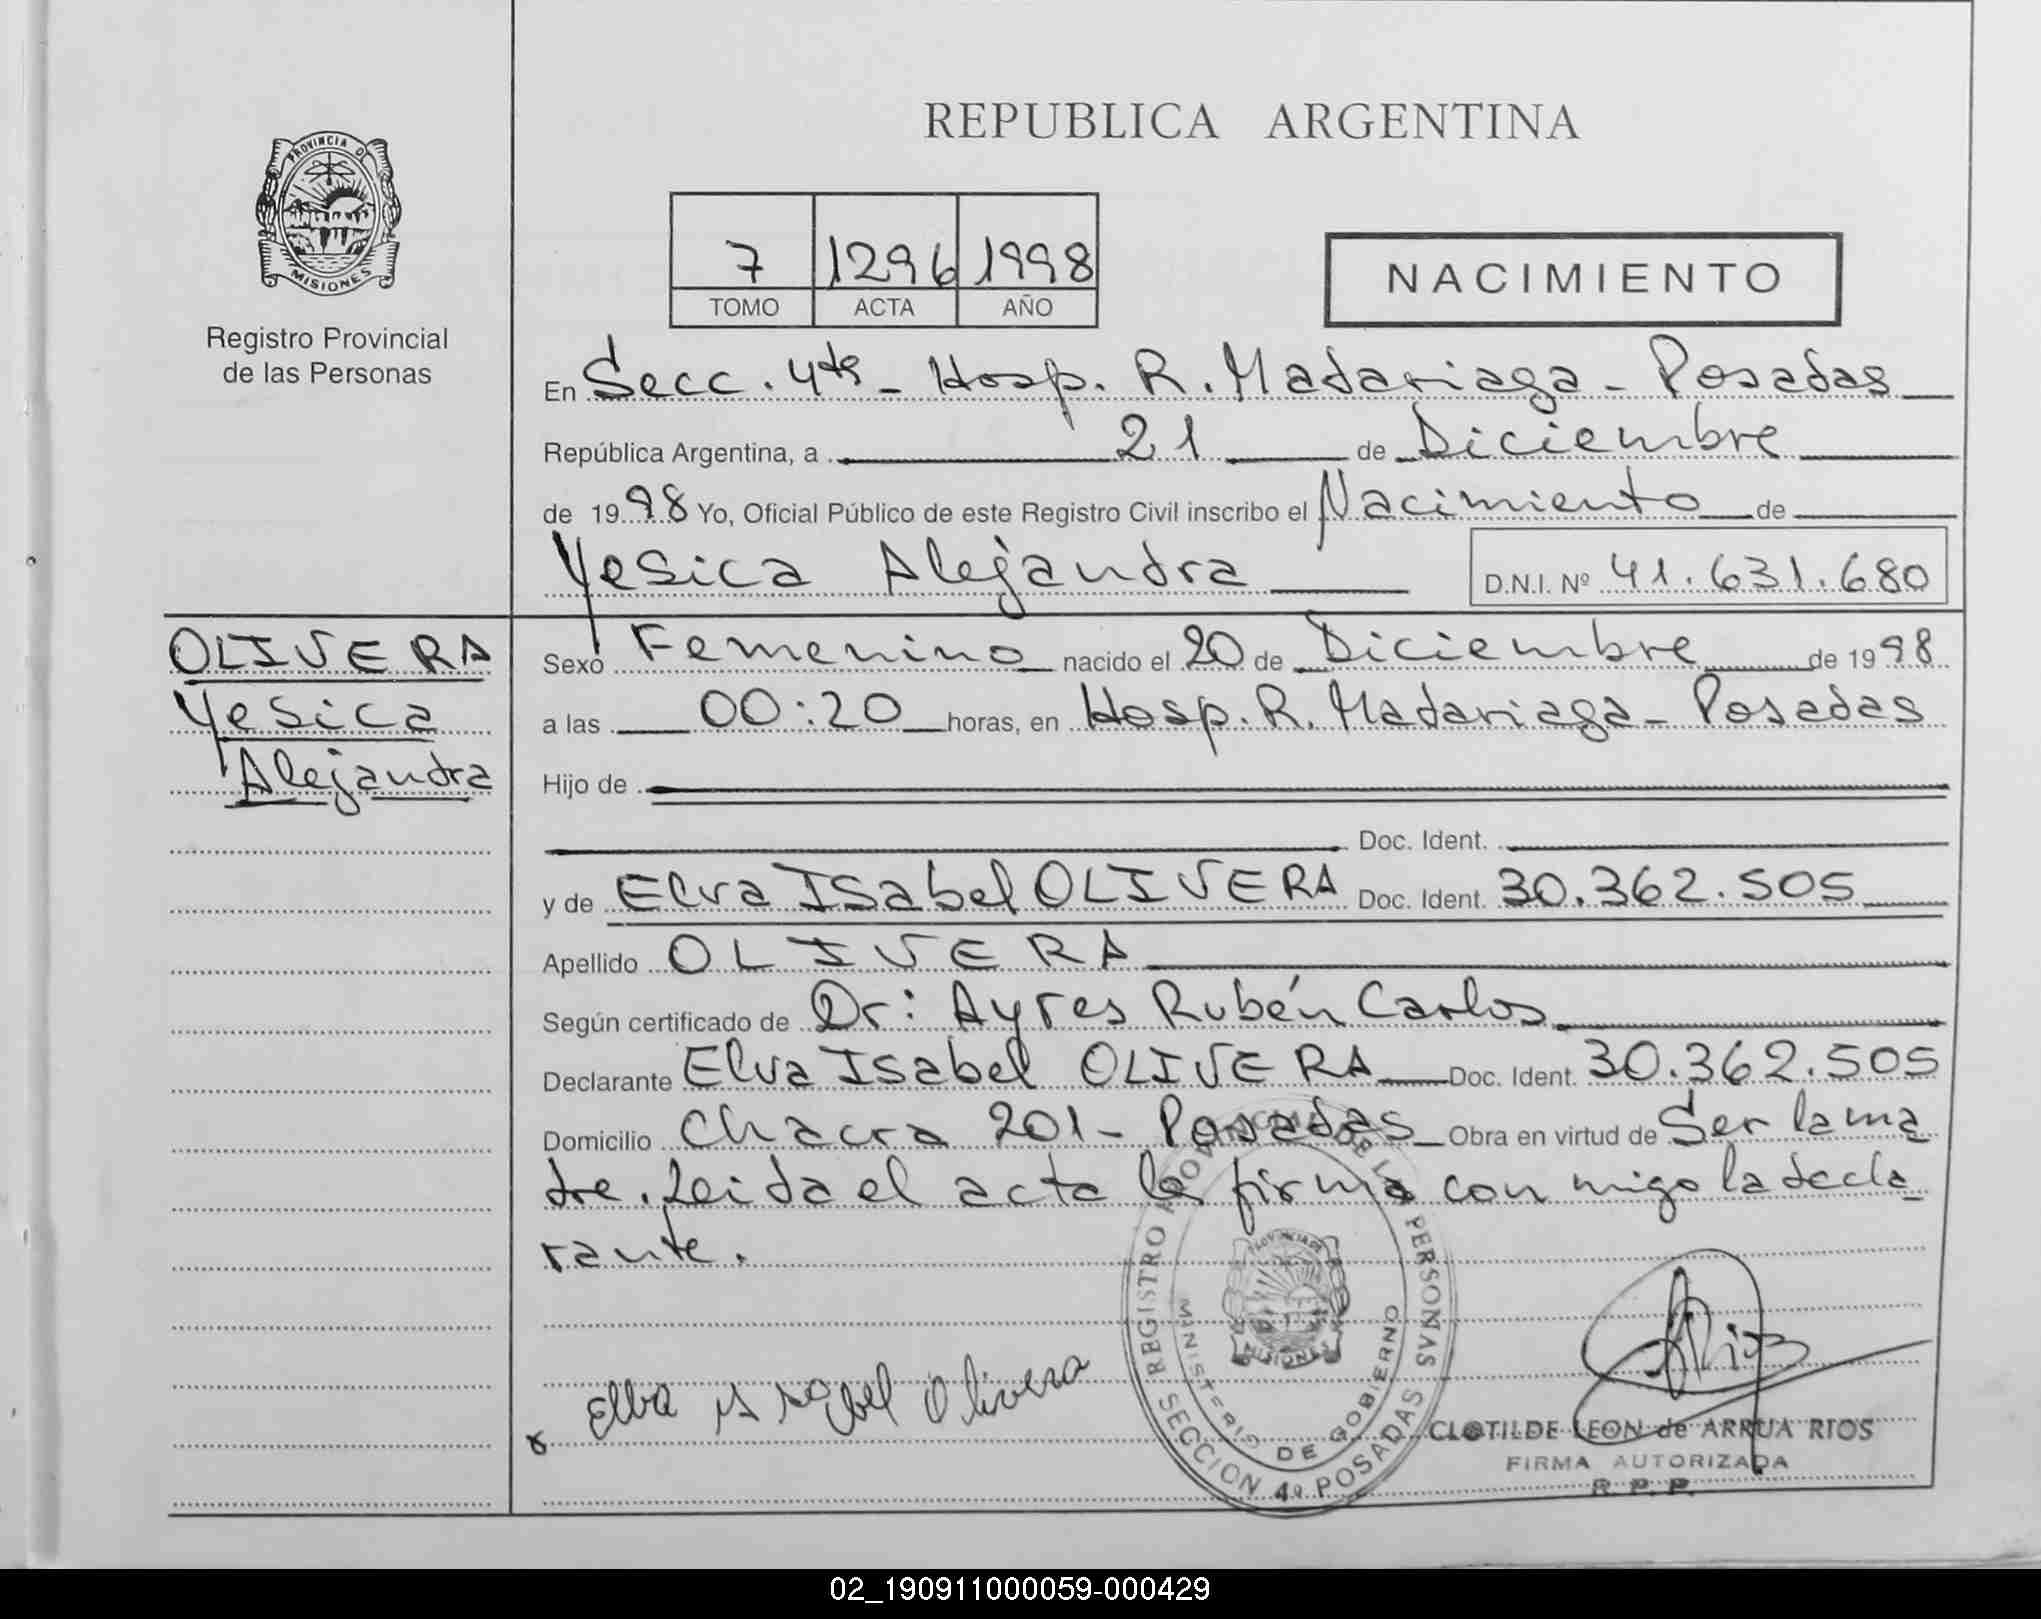 REPUBLICA ARGENTINA
PROVINCIA DE
MISIONES
Registro Provincial
de las Personas
7 1296 1998
TOMO ACTA AÑO
NACIMIENTO
En Secc. 4ta - Hosp. R. Madariaga - Posadas
República Argentina, a 21 de Diciembre
de 1998 Yo, Oficial Público de este Registro Civil inscribo el Nacimiento de
Yesica Alejandra D.N.I. Nº 41.631.680
OLIVERA
Yesica
Alejandra
Sexo Femenino nacido el 20 de Diciembre de 1998
a las 00:20 horas, en Hosp. R. Madariaga - Posadas
Hijo de
Doc. Ident.
y de Elva Isabel OLIVERA Doc. Ident. 30.362.505
Apellido OLIVERA
Según certificado de Dr: Ayres Rubén Carlos
Declarante Elva Isabel OLIVERA Doc. Ident. 30.362.505
Domicilio Chacra 201 - Posadas Obra en virtud de Ser la ma
dre. Leida el acta la firma con migo la decla
rante.
REGISTRO PROVINCIAL DE LAS PERSONAS
MINISTERIO DE GOBIERNO
MISIONES
SECCION 4ª POSADAS
Elba Isabel Olivera
CLOTILDE LEON de ARRUA RIOS
FIRMA AUTORIZADA
R. P. P.
02_190911000059-000429